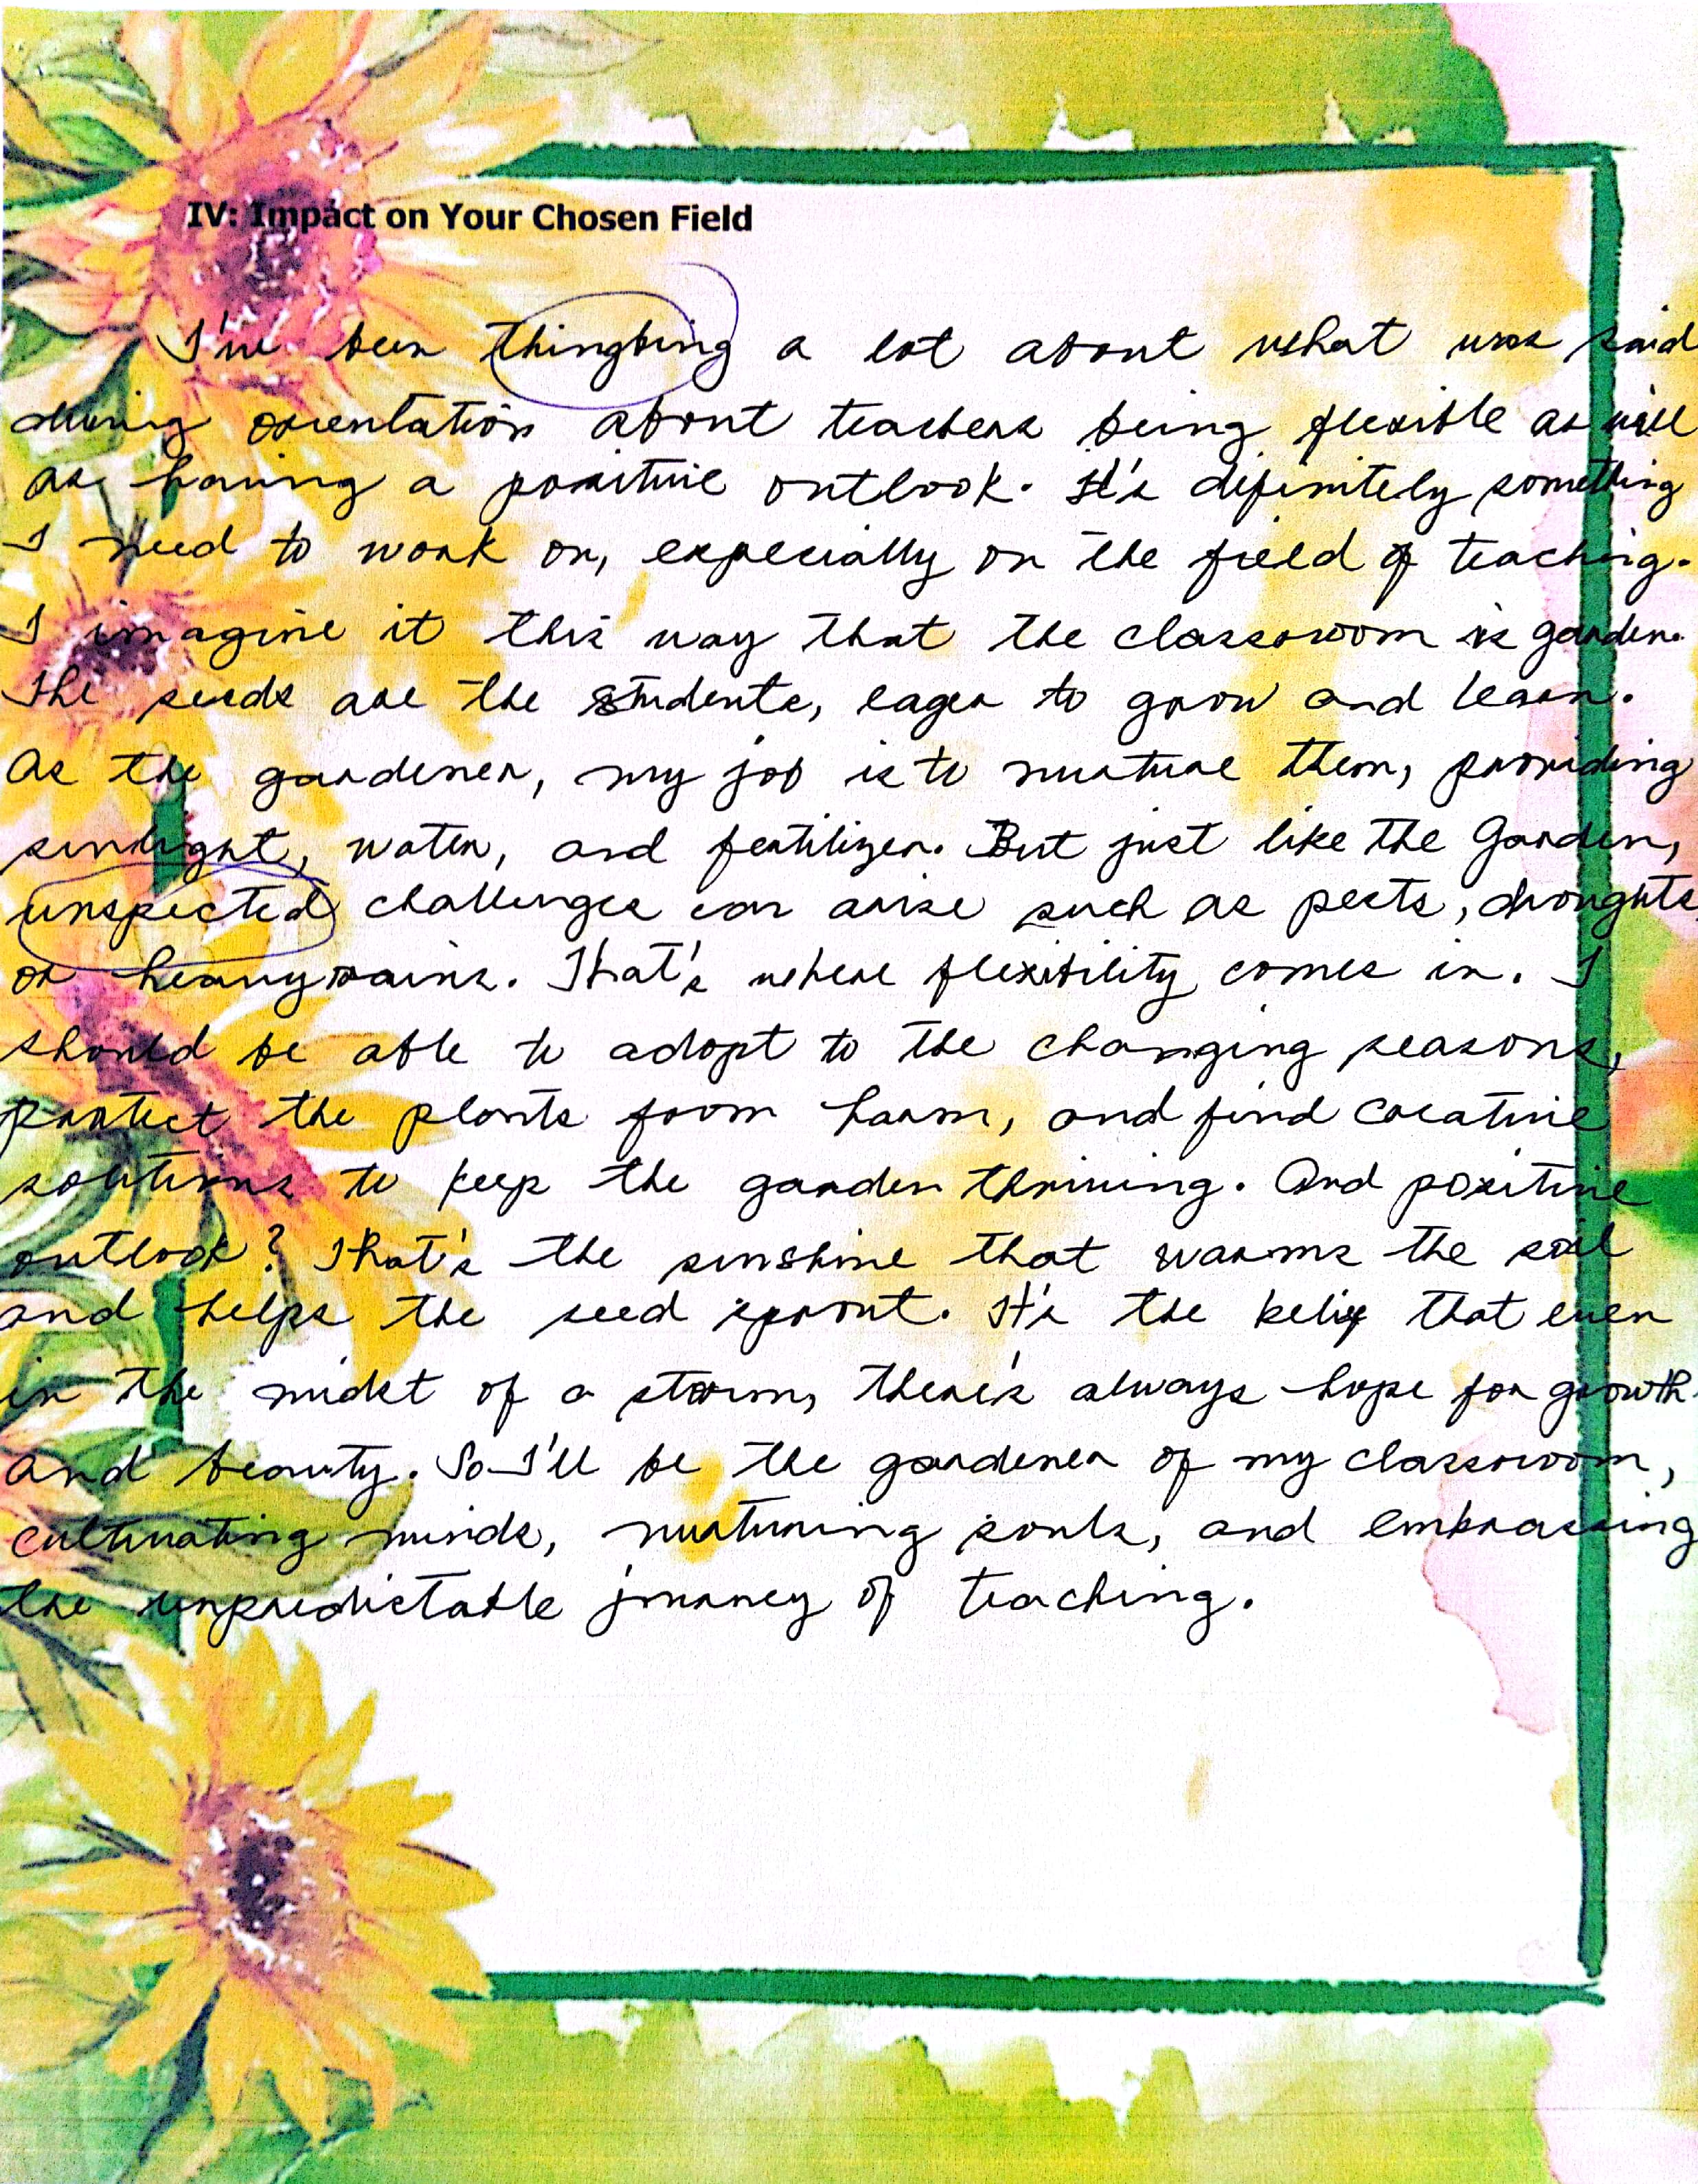 IV: Impact on Your Chosen Field
I've been thingking a lot about what was said
during orientation about teachers being flexible as well
as having a positive outlook. It's definitely something
I need to work on, especially on the field of teaching.
I imagine it this way that the classroom is garden.
The seeds are the students, eager to grow and learn.
As the gardener, my job is to nurture them, providing
sunlight, water, and fertilizer. But just like the Garden,
unspected challenges can arise such as pests, droughts,
or heavy rains. That's where flexibility comes in. I
should be able to adopt to the changing seasons,
protect the plants from harm, and find creative
solutions to keep the garden thriving. And positive
outlook? That's the sunshine that warms the soil
and helps the seed sprout. It's the belief that even
in the midst of a storm, there's always hope for growth
and beauty. So I'll be the gardener of my classroom,
cultivating minds, nurturing souls, and embrassing
the unpredictable journey of teaching.